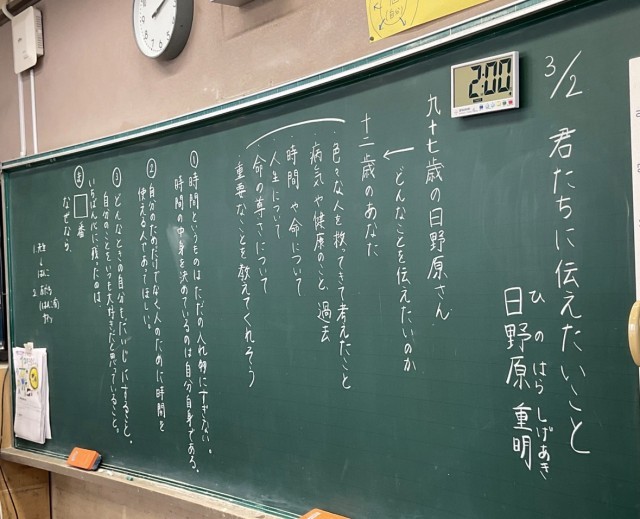 3/2 君たちに伝えたいこと
日野原 重明
ひのはら しげあき
2:00
九十七歳の日野原さん
どんなことを伝えたいのか
十二歳のあなた
・色々な人を救ってきて考えたこと
・病気や健康のこと 過去
・時間や命について
・人生について
・命の尊さについて
・重要なことを教えてくれそう
① 時間というものはただの入れ物にすぎない。
時間の中身を決めているのは自分自身である。
② 自分のためだけでなく人のために時間を
使える人であってほしい。
③ どんなときの自分もだいじにすること。
自分のことをいつも大好きだと思っていること。
いちばん心に残ったのは
□番
なぜなら、